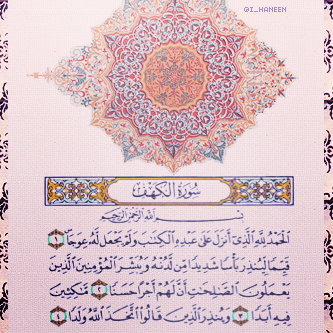 @I_HANEEN
سُورَةُ الْكَهْفِ
بِسْمِ اللَّهِ الرَّحْمَٰنِ الرَّحِيمِ
الْحَمْدُ لِلَّهِ الَّذِي أَنزَلَ عَلَىٰ عَبْدِهِ الْكِتَابَ وَلَمْ يَجْعَل لَّهُ عِوَجَا ۜ ١
قَيِّمًا لِّيُنذِرَ بَأْسًا شَدِيدًا مِّن لَّدُنْهُ وَيُبَشِّرَ الْمُؤْمِنِينَ الَّذِينَ
يَعْمَلُونَ الصَّالِحَاتِ أَنَّ لَهُمْ أَجْرًا حَسَنًا ٢ مَّاكِثِينَ
فِيهِ أَبَدًا ٣ وَيُنذِرَ الَّذِينَ قَالُوا اتَّخَذَ اللَّهُ وَلَدًا ٤